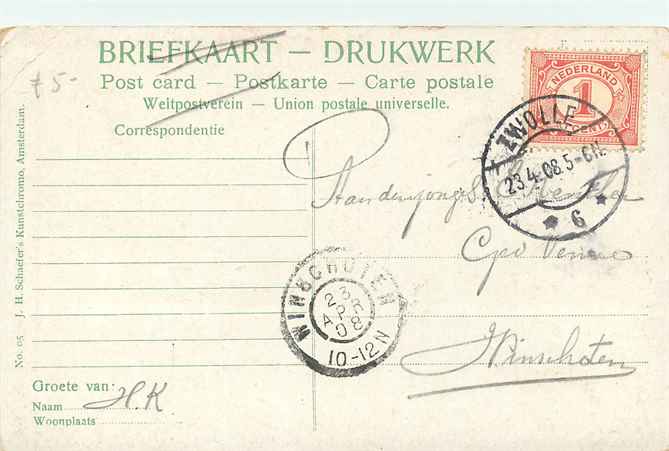 BRIEFKAART — DRUKWERK
Post card — Postkarte — Carte postale
Weltpostverein — Union postale universelle.
Correspondentie
f 5-
NEDERLAND
1
ZWOLLE
23.4.08.5-6N.
* 6 *
WINSCHOTEN
23 APR 08
10-12N
Winschoten
No. 05 J. H. Schaefer's Kunstchromo, Amsterdam.
Groete van:
Naam H.K
Woonplaats